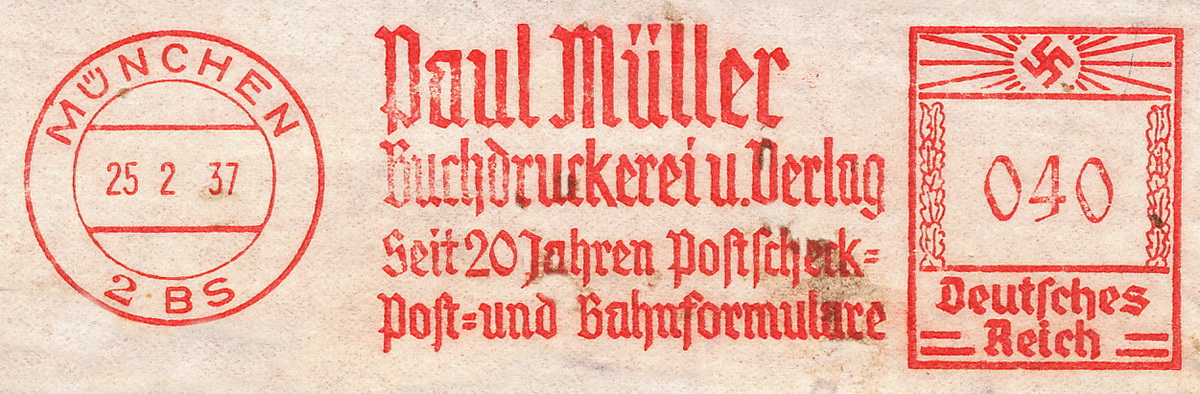 MÜNCHEN
25 2 37
2 BS
Paul Müller
Buchdruckerei u. Verlag
Seit 20 Jahren Postscheck=
Post= und Bahnformulare
040
Deutsches
Reich